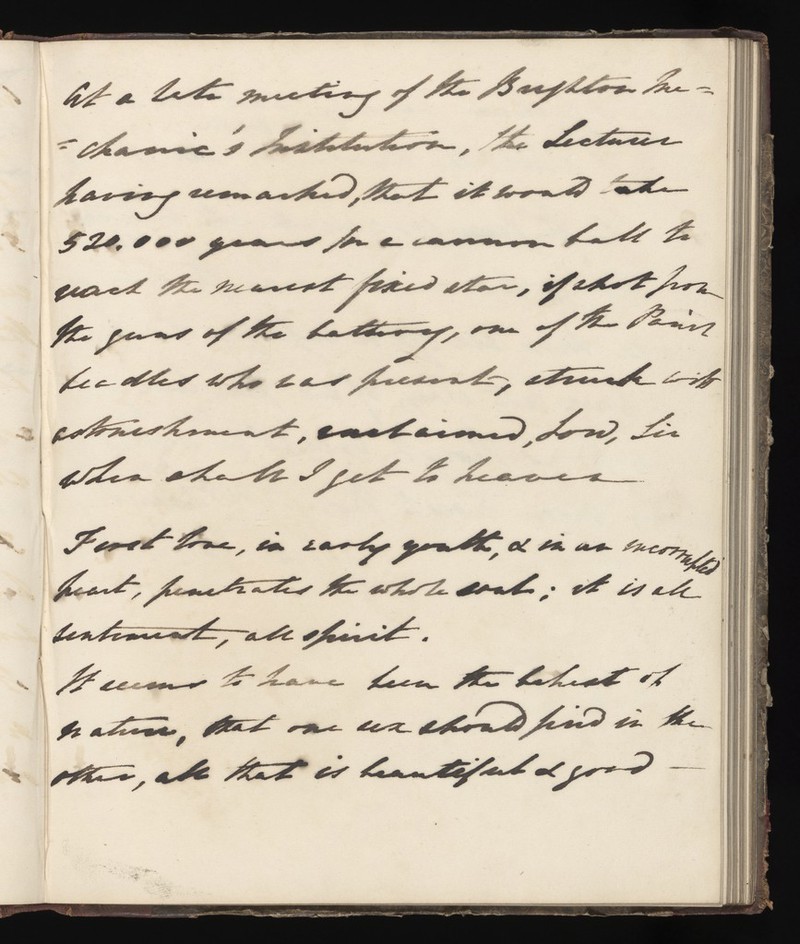 At a late meeting of the Brighton Me=
=chanic's Institution, the Lecturer
having remarked, that it would take
520.000 years for a cannon ball to
reach the nearest fixed star, if shot from
the guns of the battery, one of the Parish
beadles who was present, struck with
astonishment, exclaimed, Lord, Sir
when shall I get to heaven
First love, in early youth, & in an uncorrupted
heart, penetrates the whole soul; it is all
sentiment, all spirit.
It seems to have been the behest of
nature, that one sex should find in the
other, all that is beautiful & good —